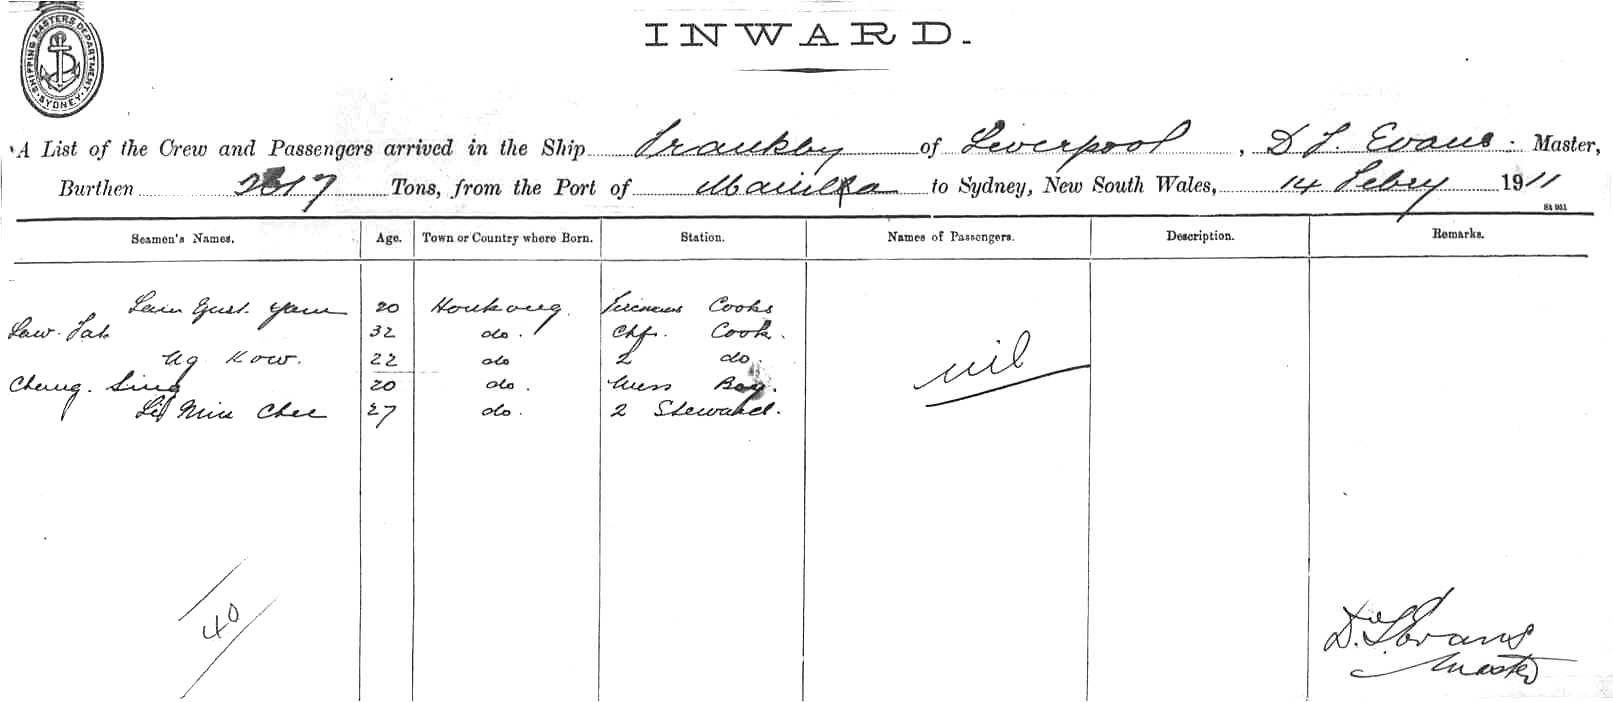 SHIPPING MASTERS DEPARTMENT. SYDNEY.
INWARD.
A List of the Crew and Passengers arrived in the Ship Frankby of Liverpool, D L Evans. Master,
Burthen Tons, from the Port of Manilla to Sydney, New South Wales, 14 Febry 1911
St 951
Seamen's Names. Age. Town or Country where Born. Station. Names of Passengers. Description. Remarks.
Yam 20 Honkong. Firemens Cooks
Law. Tak 32 do. Chf. Cook.
Ng Kow. 22 do 2 do.
Cheng. Sing 20 do. Mess Boy.
Min Chee 27 do. 2 Steward.
nil
40
D. L. Evans
Master